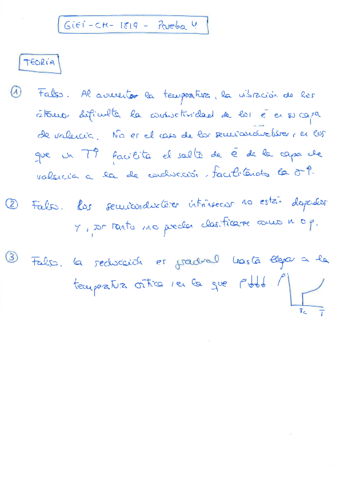 GIEI-CM-1819 - Prueba 4
TEORÍA
① Falso. Al aumentar la temperatura, la vibración de los
átomos dificulta la conductividad de los é en su capa
de valencia. No es el caso de los semiconductores, en los
que un T↑ facilita el salto de é de la capa de
valencia a la de conducción, facilitando la σ↑.
② Falso. Los semiconductores intrínsecos no están dopados
y, por tanto no pueden clasificarse como n o p.
③ Falso. La reducción es gradual hasta llegar a la
temperatura crítica, en la que ρ↓↓↓
Tc T